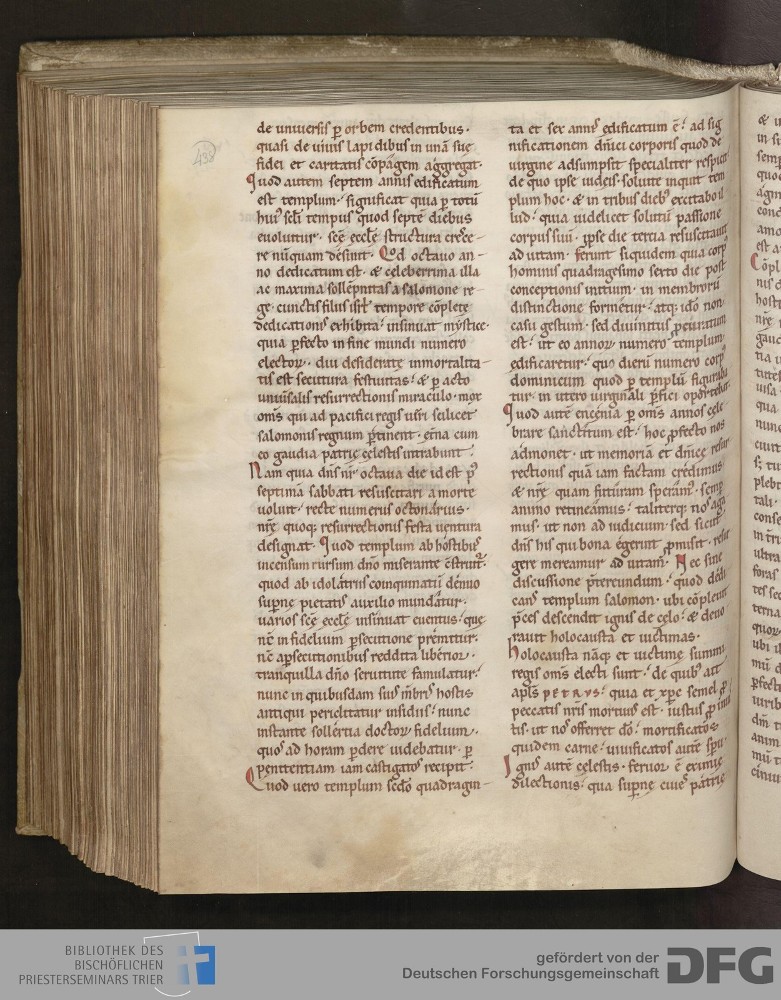 438
de uniuersis ꝑ orbem credentibus·
quasi de uiuis lapidibus in unā suę
fidei et caritatis cōpagem aggregat·
Quod autem septem annis edificatum
est templum· significat quia ꝑ totū
hui᷒ sc̄li tempus quod septē diebus
euoluitur· scē ęcclę structura cresce-
re nūquam desinit· Qd̄ octauo an-
no dedicatum est· & celeberrima illa
ac maxima sollēpnitas a salomone re-
ge· cunctis filiis isrl̄ tempore cōpletę
dedicationis exhibita· insinuat mystice·
quia ꝑfecto in fine mundi numero
electoꝝ· diu desideratę inmortalita-
tis est secutura festiuitas· & ꝑacto
uniuersalis resurrectionis miraculo· mox
om̄s qui ad pacifici regis uīri scilicet
salomonis regnum ꝑtinent· et̄na cum
eo gaudia patrię cęlestis intrabunt·
Nam quia dn̄s nr̄ octaua die id est p᷒
septimā sabbati resuscitari a morte
uoluit· recte numerus octonarius·
nrę̄ quoqꝫ resurrectionis festa uentura
designat· Quod templum ab hostib᷒
incensum rursum dn̄o miserante c̄struit᷑·
quod ab idolatriis coinquinatū denuo
suꝑnę pietatis auxilio mundatur·
uarios scē ęcclę insinuat euentus· quę
nc̄ infidelium ꝑsecutione premitur·
nc̄ a ꝑsecutionibus reddita liberior·
tranquilla dn̄o seruitute famulatur·
nunc in quibusdam suis mēbris hostis
antiqui periclitatur insidiis· nunc
instante sollertia doctoꝝ fidelium·
quos ad horam ꝑdere uidebatur· ꝑ
penitentiam iam castigatos recipit·
Quod uero templum scd̄o quadragin-
ta et sex annis edificatum ē· ad sig
nificationem dn̄ici corporis quod de
uirgine adsumpsit specialiter respicit·
de quo ipse iudeis· soluite inquit tem
plum hoc· & in tribus dieb᷒ excitabo il
lud· quia uidelicet solutū passione
corpus suū· ipse die tercia resuscitauit
ad uitam· ferunt siquidem quia corp᷒
hominis quadragesimo sexto die post
conceptionis initium· in membroꝝ
distinctione formetur· atqꝫ idō non
casu gestum· sed diuinitus ꝓcuratum
est· ut eo annoꝝ numero templum
edificaretur· quo dierū numero corp᷒
dominicum quod ꝑ templū figuraba
tur· in utero uirginali ꝑfici oporteret·
Quod autē encenia ꝑ om̄s annos cele
brare sanctitum est· hoc ꝓfecto nos
admonet· ut memoriā et dn̄icę resur
rectionis quā iam factam credimus
& nrę̄ quam futuram speram᷒· semꝑ
animo retineamus· taliterqꝫ nos aga
mus· ut non ad iudicium· sed sicut
dn̄s his qui bona egerint ꝓmisit· resur
gere mereamur ad uitam· Nec sine
discussione p̄tereundum· quod dedi
cans templum salomon· ubi cōpleuit
p̄ces descendit ignis de cęlo· & deuo
rauit holocausta et uictimas·
Holocausta nāqꝫ et uictimę summi
regis om̄s electi sunt· de quib᷒ ait
apls̄ PETRVS· quia et xp̄c semel ꝓ
peccatis nr̄is mortuus est· iustus ꝓ iniu
stis· ut nos offerret dō· mortificatos
quidem carne· uiuificatos autē spū·
Ignis autē cęlestis· feruor ē eximię
dilectionis· qua suꝑnę ciues patrię
BIBLIOTHEK DES
BISCHÖFLICHEN
PRIESTERSEMINARS TRIER
gefördert von der
Deutschen Forschungsgemeinschaft
DFG